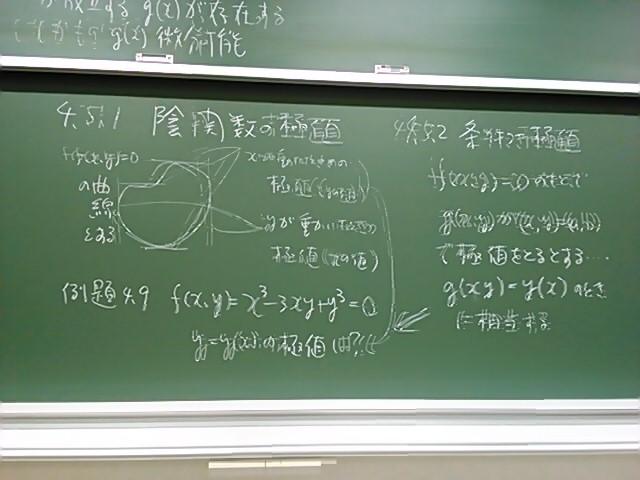 が成立する g(x) が存在する
g(x) 微分可能
4.5.1 陰関数の極値
f(x,y)=0
の曲
線
とする
極値(yの値)
yが動かい
極値(xの値)
例題4.9 f(x,y)=x³-3xy+y³=0
y=y(x)の極値は?
4.5.2 条件つき極値
f(x,y)=0のもとで
g(x,y)が(x,y)=(a,b)
で極値をとるとする…
g(x,y)=y(x)のとき
に相当する